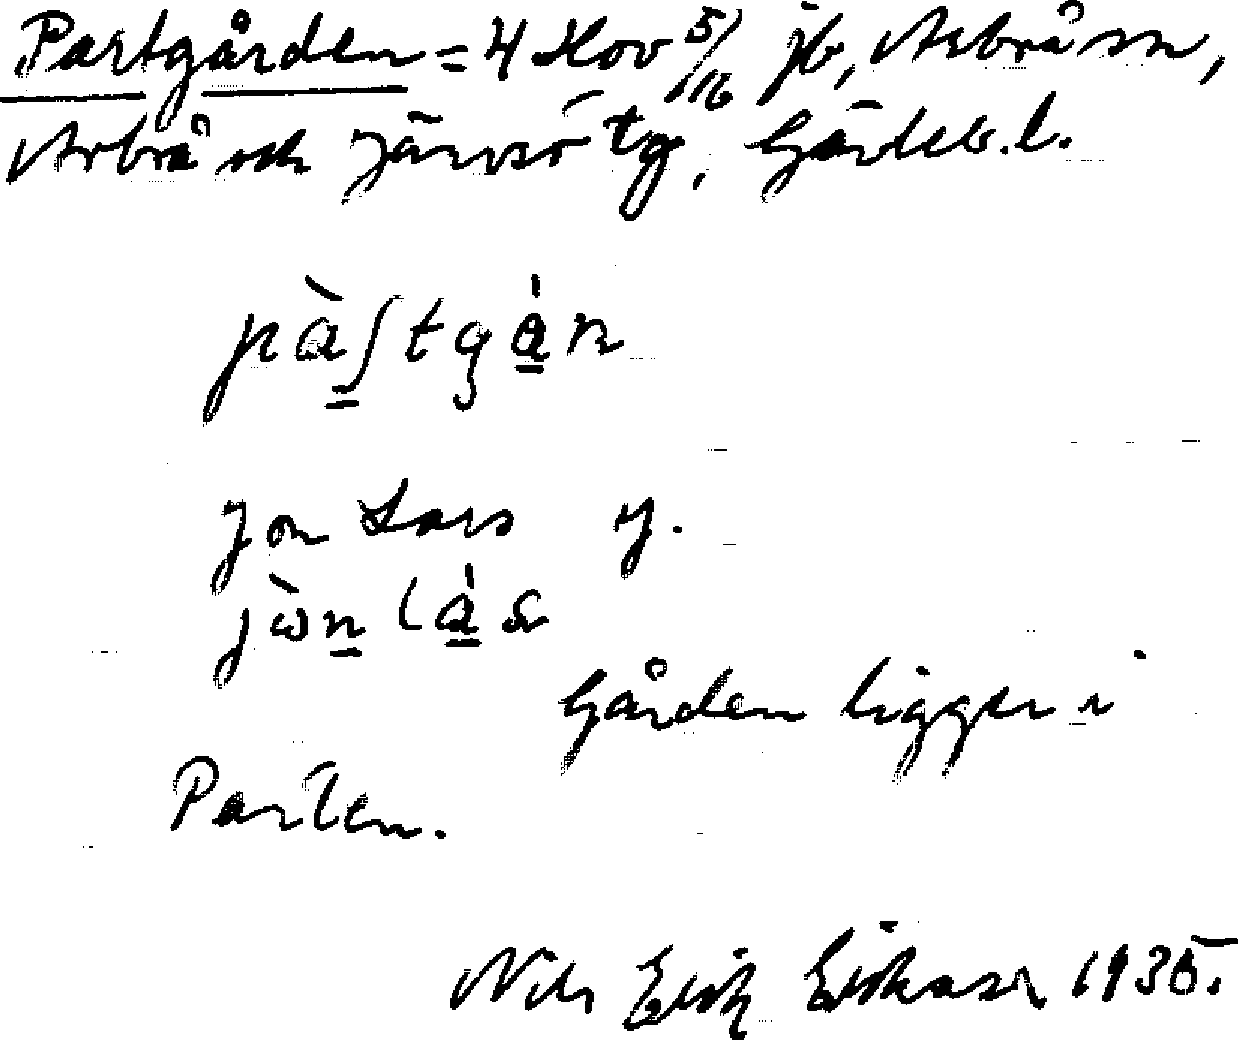 Partgården = 4 Hov 5/16 jb, Arbrå sn,
Arbrå och Järvsö tg, Gävleb. l.
pàʃtgá̱n
Jon Lars g.
jòn lá̱s
Gården ligger i
Parten.
Nils Erik Eriksson 1935.